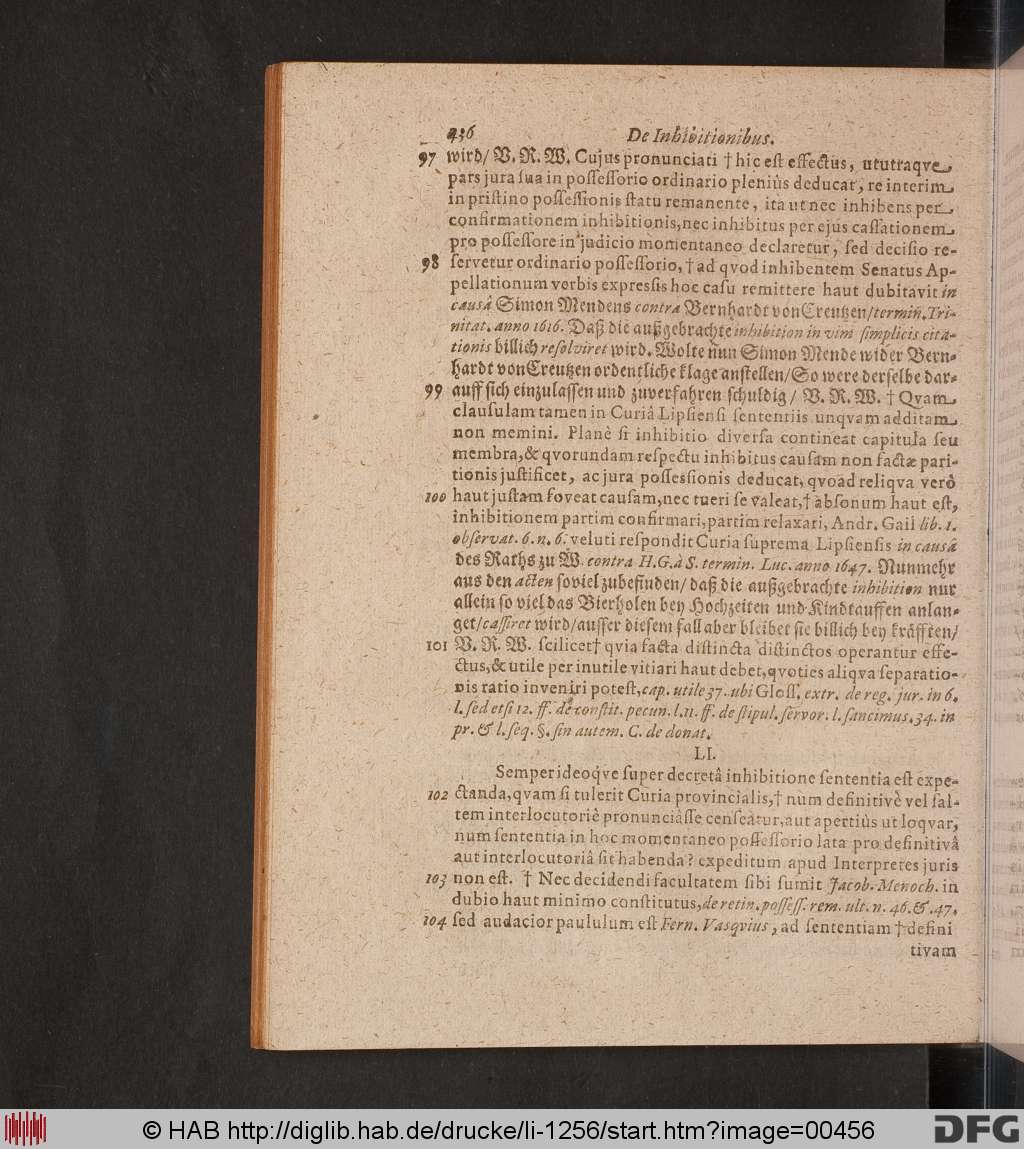 436 De Inhibitionibus.
97 wird/ V. R. W. Cujus pronunciati † hic est effectus, ututraqve
pars jura sua in possessorio ordinario pleniùs deducat, re interim
in pristino possessionis statu remanente, ita ut nec inhibens per
confirmationem inhibitionis, nec inhibitus per ejus cassationem
pro possessore in judicio momentaneo declaretur, sed decisio re-
98 servetur ordinario possessorio, † ad qvod inhibentem Senatus Ap-
pellationum verbis expressis hoc casu remittere haut dubitavit in
causâ Simon Mendens contra Bernhardt von Creutzen/ termin. Tri-
nitat. anno 1616. Daß die außgebrachte inhibition in vim simplicis cita-
tionis billich resolviret wird. Wolte nun Simon Mende wider Bern-
hardt von Creutzen ordentliche klage anstellen/ So were derselbe dar-
99 auff sich einzulassen und zuverfahren schuldig/ V. R. W. † Qvam
clausulam tamen in Curiâ Lipsiensi sententiis unqvam additam
non memini. Planè si inhibitio diversa contineat capitula seu
membra, & qvorundam respectu inhibitus causam non factæ pari-
tionis justificet, ac jura possessionis deducat, qvoad reliqva verò
100 haut justam foveat causam, nec tueri se valeat, † absonum haut est,
inhibitionem partim confirmari, partim relaxari, Andr. Gail lib. 1.
observat. 6. n. 6. veluti respondit Curia suprema Lipsiensis in causâ
des Raths zu W. contra H. G. à S. termin. Luc. anno 1647. Nunmehr
aus den acten soviel zubefinden/ daß die außgebrachte inhibition nur
allein so viel das Bierholen bey Hochzeiten und Kindtauffen anlan-
get/ cassiret wird/ ausser diesem fall aber bleibet sie billich bey kräfften/
101 V. R. W. scilicet † qvia facta distincta distinctos operantur effe-
ctus, & utile per inutile vitiari haut debet, qvoties aliqva separatio-
nis ratio inveniri potest, cap. utile 37. ubi Gloss. extr. de reg. jur. in 6.
l. sed etsi 12. ff. de constit. pecun. l. 11. ff. de stipul. servor. l. sancimus. 34. in
pr. & l. seq. §. sin autem. C. de donat.
LI.
Semper ideoqve super decretâ inhibitione sententia est expe-
102 ctanda, qvam si tulerit Curia provincialis, † num definitivè vel sal-
tem interlocutoriè pronunciâsse censeatur, aut apertiùs ut loqvar,
num sententia in hoc momentaneo possessorio lata pro definitivâ
aut interlocutoriâ sit habenda? expeditum apud Interpretes juris
103 non est. † Nec decidendi facultatem sibi sumit Jacob. Menoch. in
dubio haut minimo constitutus, de retin. possess. rem. ult. n. 46. & 47.
104 sed audacior paululum est Fern. Vasqvius, ad sententiam † defini
tivam
© HAB http://diglib.hab.de/drucke/li-1256/start.htm?image=00456
DFG